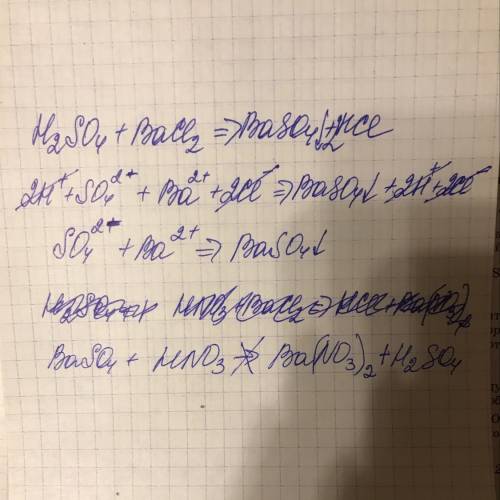 H₂SO₄ + BaCl₂ => BaSO₄↓ + 2HCl
2H⁺ + SO₄²⁺ + Ba²⁺ + 2Cl⁻ => BaSO₄↓ + 2H⁺ + 2Cl⁻
SO₄²⁻ + Ba²⁺ => BaSO₄↓
BaSO₄ + HNO₃ ≠> Ba(NO₃)₂ + H₂SO₄